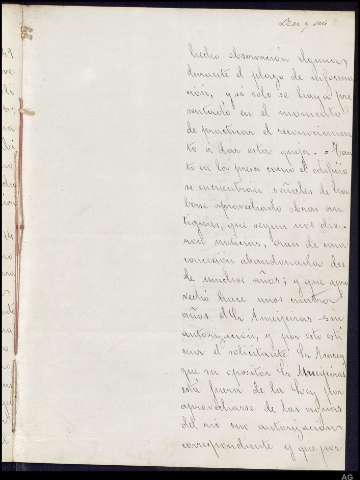 Diez y seis
hecho observación alguna
durante el plazo de informa
ción, y si sólo se haya pre
sentado en el momento
de practicar el reconocimien
to á dar esta queja. = Tan
to en la presa como el edificio
se encuentran señales de ha
berse aprovechado obras an
tiguas, que segun nos die
ron noticias, eran de una
concesión abandonada des
de muchos años; y que
hace unos cuatro
años el Sr. Ameijeiras sin
autorización, y por esto
el solicitante Sr.
que su opositor Sr. Ameijeiras
está fuera de la Ley por
aprovecharse de las aguas
del río sin autorización
correspondiente y que por
AG